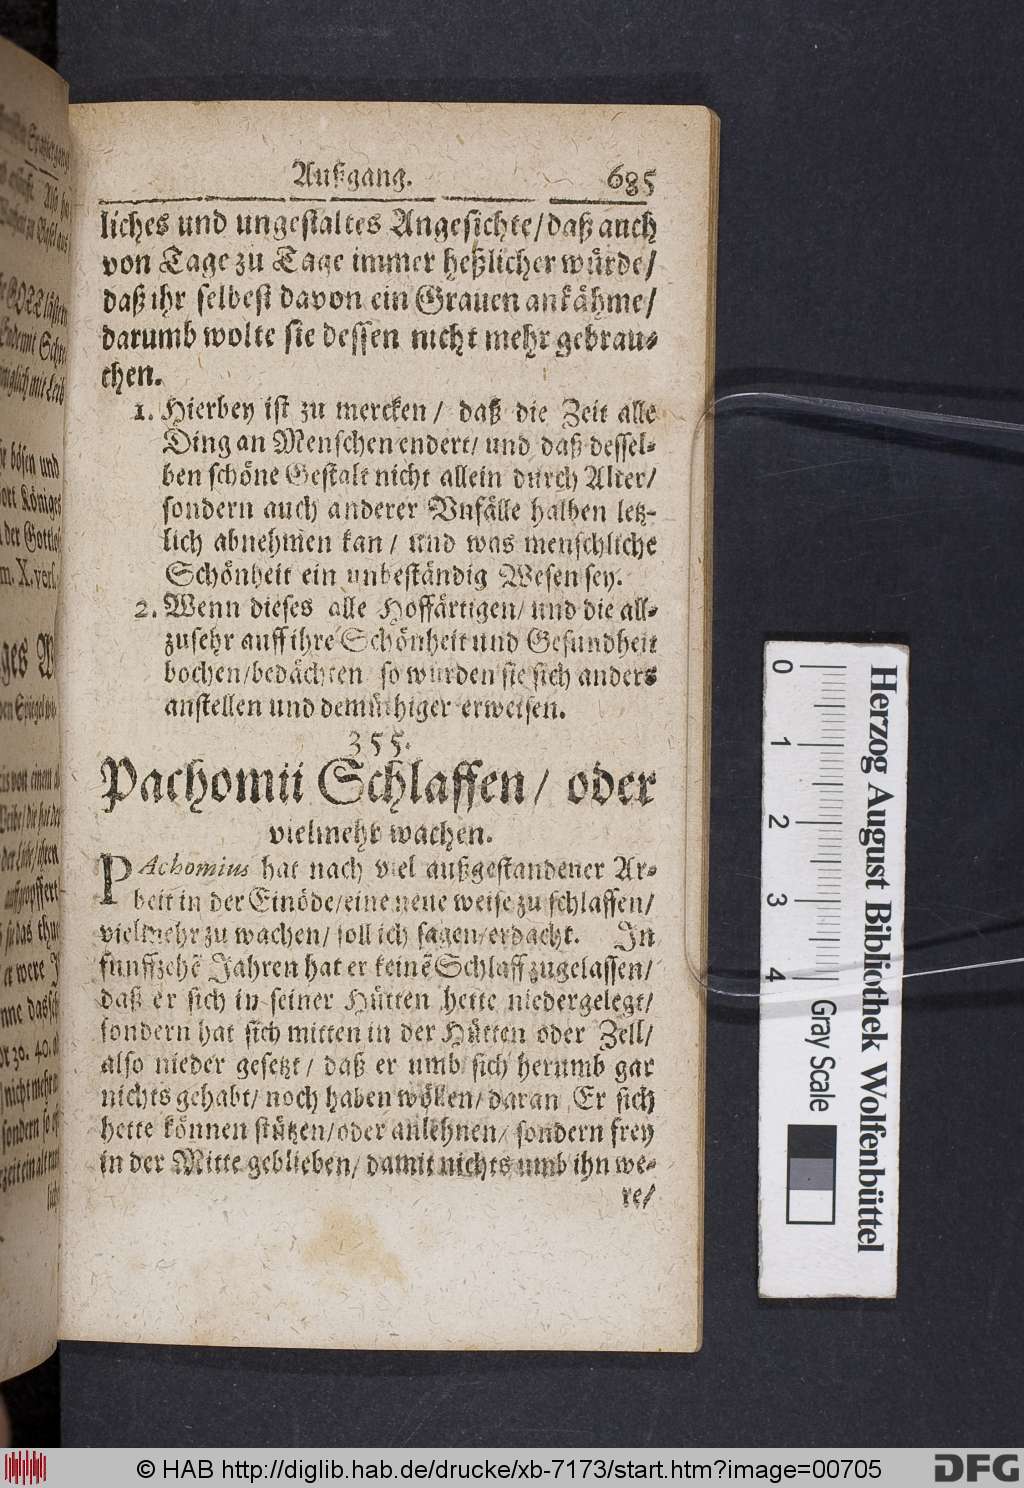 Außgang. 685
liches und ungestaltes Angesichte/daß auch
von Tage zu Tage immer heßlicher würde/
daß ihr selbest davon ein Grauen ankähme/
darumb wolte sie dessen nicht mehr gebrau-
chen.
1. Hierbey ist zu mercken/ daß die Zeit alle
Ding an Menschen endert/ und daß dessel-
ben schöne Gestalt nicht allein durch Alter/
sondern auch anderer Vnfälle halben letz-
lich abnehmen kan/ und was menschliche
Schönheit ein unbeständig Wesen sey.
2. Wenn dieses alle Hoffärtigen/ und die all-
zusehr auff ihre Schönheit und Gesundheit
bochen/bedächten so würden sie sich anders
anstellen und demüthiger erweisen.
355.
Pachomii Schlaffen/ oder
vielmehr wachen.
PAchomius hat nach viel außgestandener Ar-
beit in der Einöde/eine neue weise zu schlaffen/
vielmehr zu wachen/ soll ich sagen/erdacht. In
funffzehē Jahren hat er keinē Schlaff zugelassen/
daß er sich in seiner Hütten hette niedergelegt/
sondern hat sich mitten in der Hütten oder Zell/
also nieder gesetzt/ daß er umb sich herumb gar
nichts gehabt/ noch haben wöllen/ daran Er sich
hette können stützen/oder anlehnen/ sondern frey
in der Mitte geblieben/ damit nichts umb ihn we-
re/
0 1 2 3 4
Gray Scale
Herzog August Bibliothek Wolfenbüttel
© HAB http://diglib.hab.de/drucke/xb-7173/start.htm?image=00705
DFG